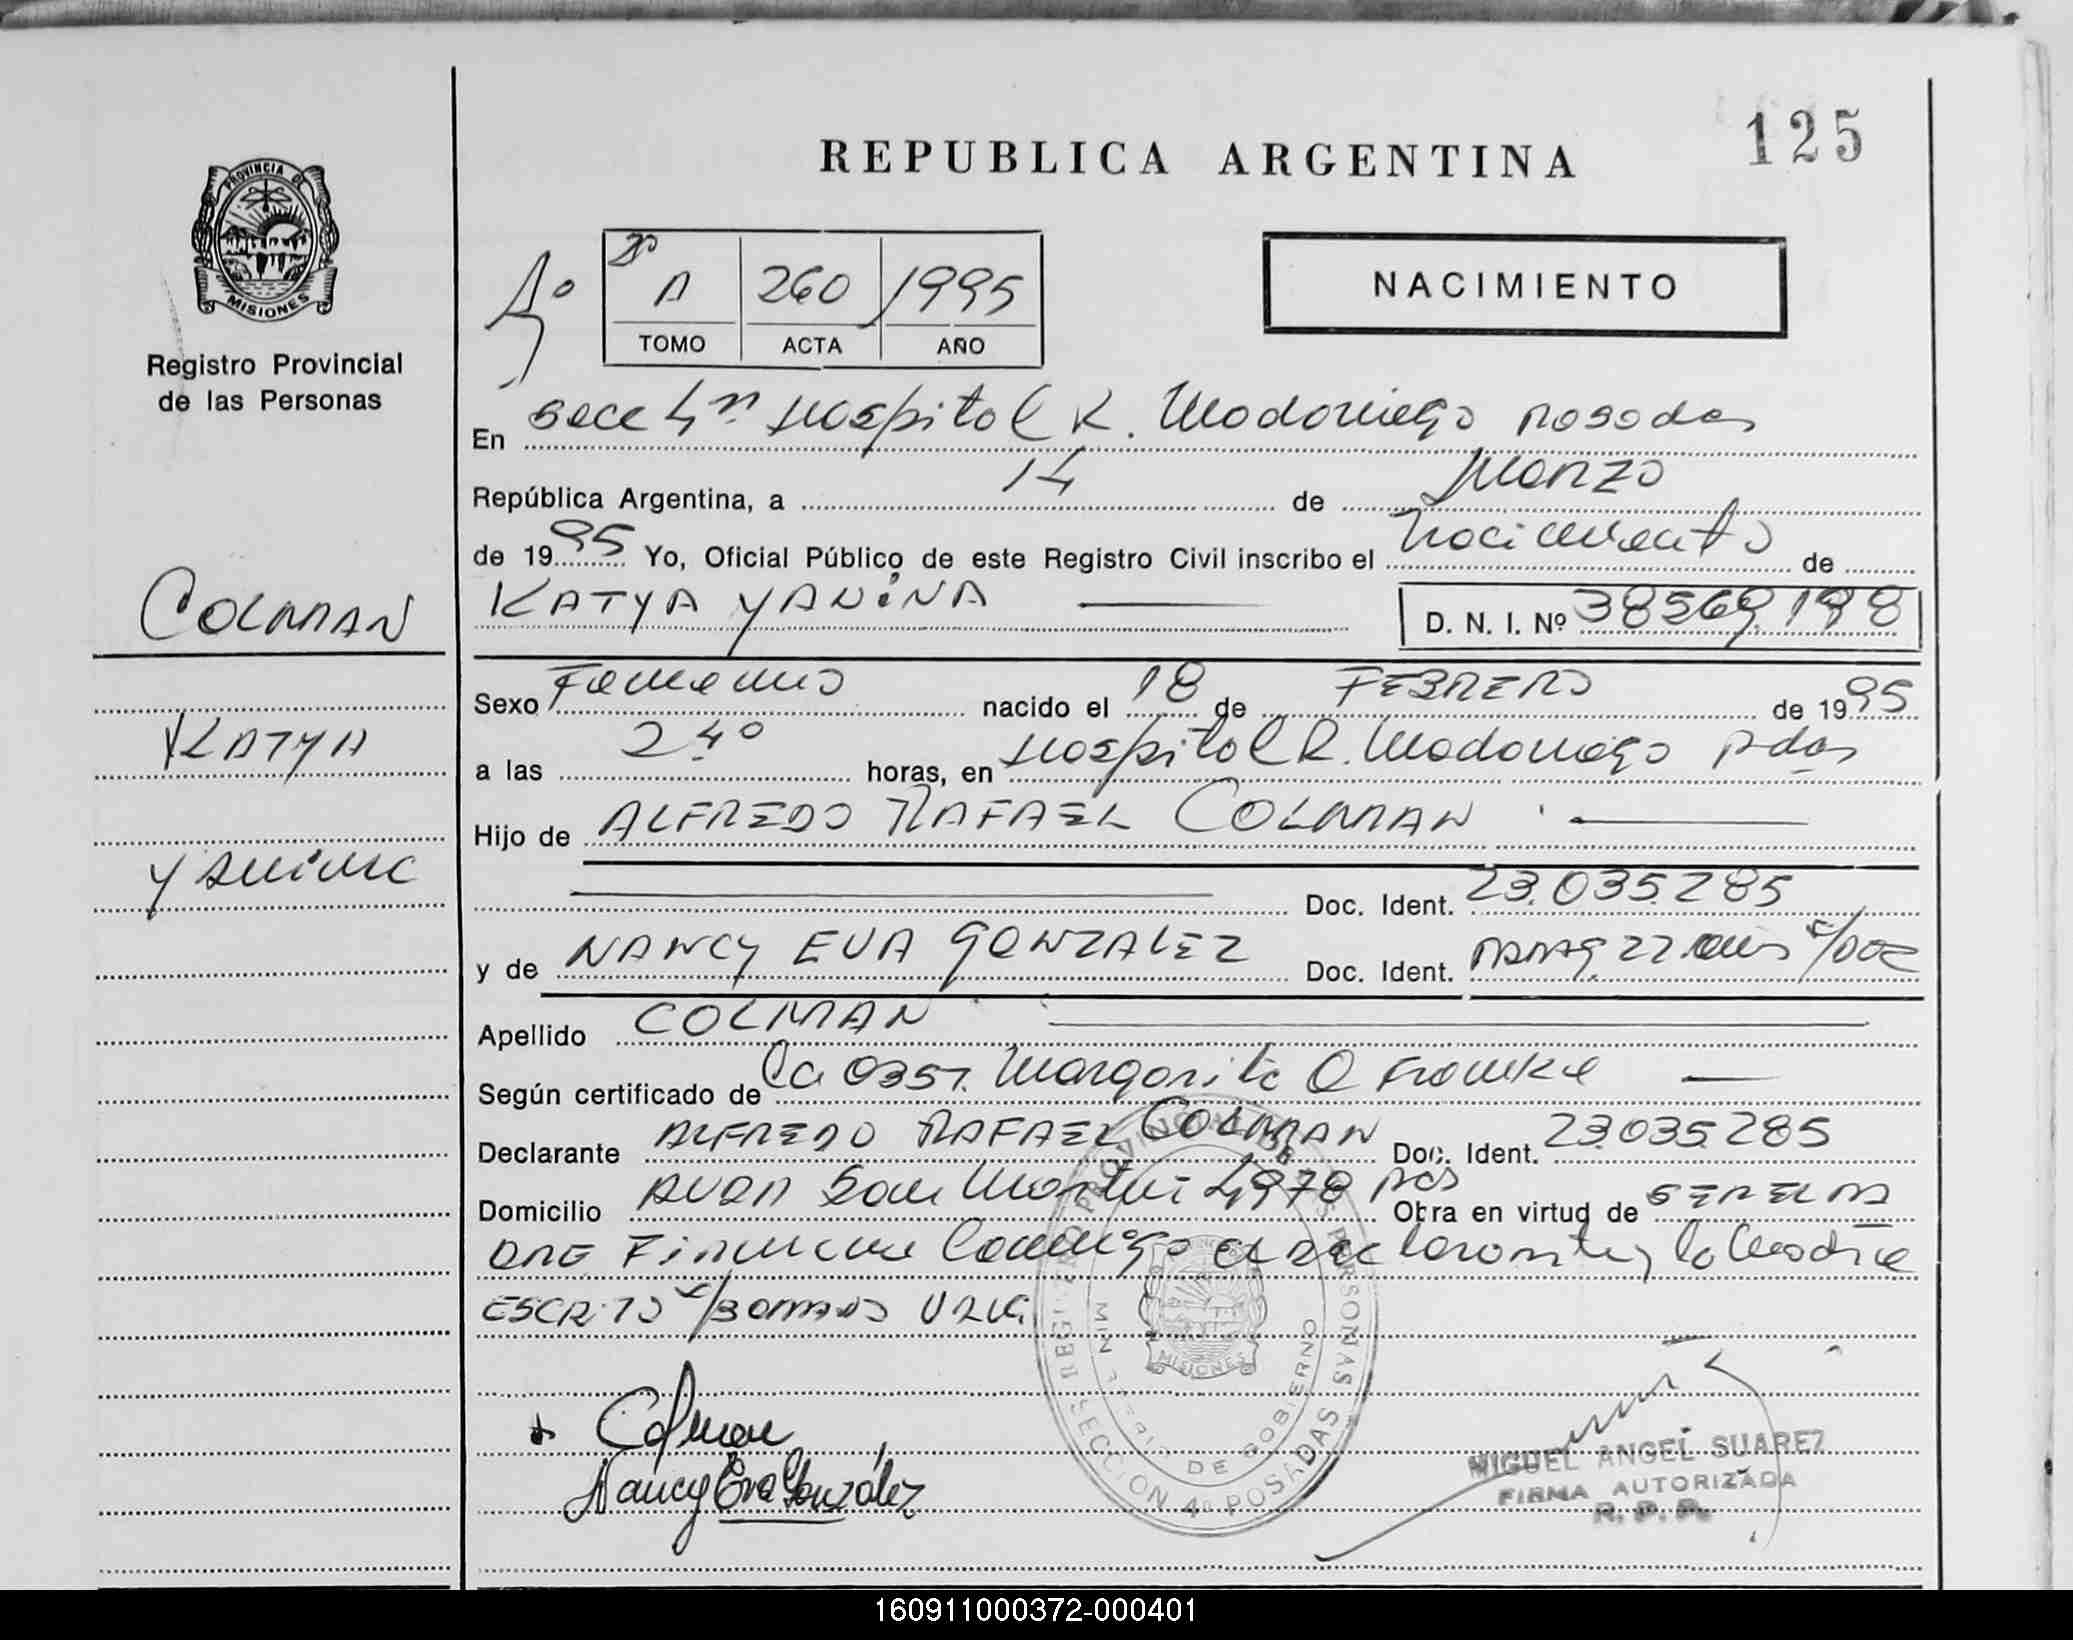 125
REPUBLICA ARGENTINA
PROVINCIA DE
MISIONES
Registro Provincial
de las Personas
NACIMIENTO
A 260 1995
TOMO ACTA AÑO
En Secc 4ª Hospital R. Madariaga Posadas
República Argentina, a 14 de Marzo
de 1995 Yo, Oficial Público de este Registro Civil inscribo el Nacimiento de
KATYA YANINA D. N. I. Nº 38569.198
COLMAN
KATYA
YANINA
Sexo Femenino nacido el 18 de FEBRERO de 1995
a las 2 4º horas, en Hospital R. Madariaga Pdas
Hijo de ALFREDO RAFAEL COLMAN
Doc. Ident. 23.035.285
y de NANCY EVA GONZALEZ Doc. Ident. 22 años s/DOC
Apellido COLMAN
Según certificado de la Obst. Margarita
Declarante ALFREDO RAFAEL COLMAN Doc. Ident. 23.035.285
Domicilio AVDA San Martin 4978 Pdas Obra en virtud de SER EL PA
DRE Firman conmigo el declarante y la Madre
ESCRITO s/BORRADO
REGISTRO PROVINCIAL DE LAS PERSONAS
MINISTERIO DE GOBIERNO
MISIONES
SECCION 4º POSADAS
Colman
Nancy Eva González
MIGUEL ANGEL SUAREZ
FIRMA AUTORIZADA
R. P. P.
160911000372-000401